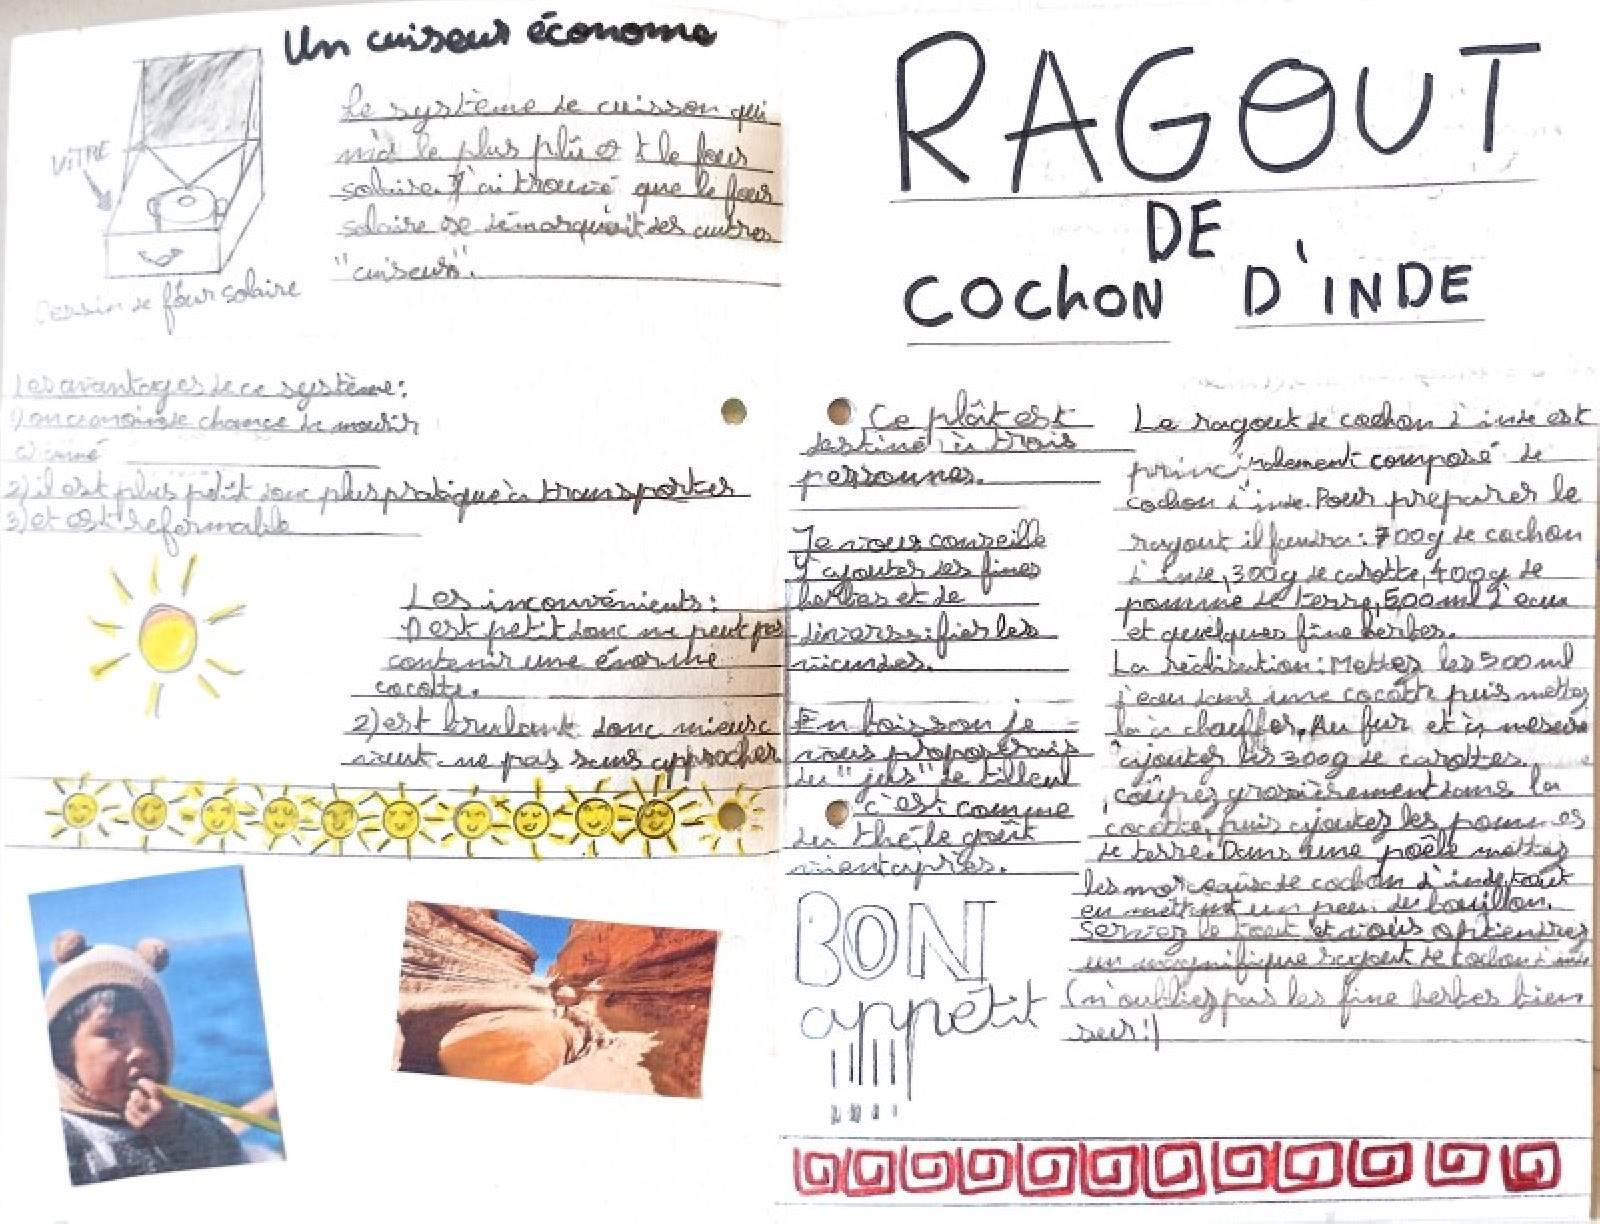 Un cuiseur économe
Le système de cuisson qui
m'a le plus plû est le four
solaire. J'ai trouvé que le four
solaire se démarquait des autres
"cuiseurs".
VITRE
Dessin de four solaire
Les avantages de ce système:
1) on a moins de chance de mourir
2) il est plus petit donc plus pratique à transporter
3) et est refermable
Les inconvénients:
1) est petit donc ne peut pas
contenir une énorme
cocotte.
2) est brulant donc mieux
vaut ne pas sans approcher
RAGOUT
DE
COCHON D'INDE
Ce plât est
destiné à trois
personnes.
Je vous conseille
d'ajouter des fines
herbes et de
diversifier les
viandes.
En boisson je
vous proposerais
du "jus" de tilleul
c'est comme
du thé, le goût
vient après.
BON
appétit
Le ragout de cochon d'inde est
principalement composé de
cochon d'inde. Pour preparer le
ragout il faudra: 700g de cochon
d'inde, 300g de carotte, 400g de
pomme de terre, 500ml d'eau
et quelques fine herbes.
La réalisation: Mettez les 500ml
d'eau dans une cocotte puis mettez
la à chauffer. Au fur et à mesure
ajoutez les 300g de carottes.
coupez grossièrement dans la
cocotte, puis ajoutez les pommes
de terre. Dans une poêle mettez
les morceaux de cochon d'inde, tout
en mettant un peu du bouillon.
Servez le tout et vous obtiendrez
un magnifique ragout de cochon d'inde
(n'oubliez pas les fine herbes bien
sur!)